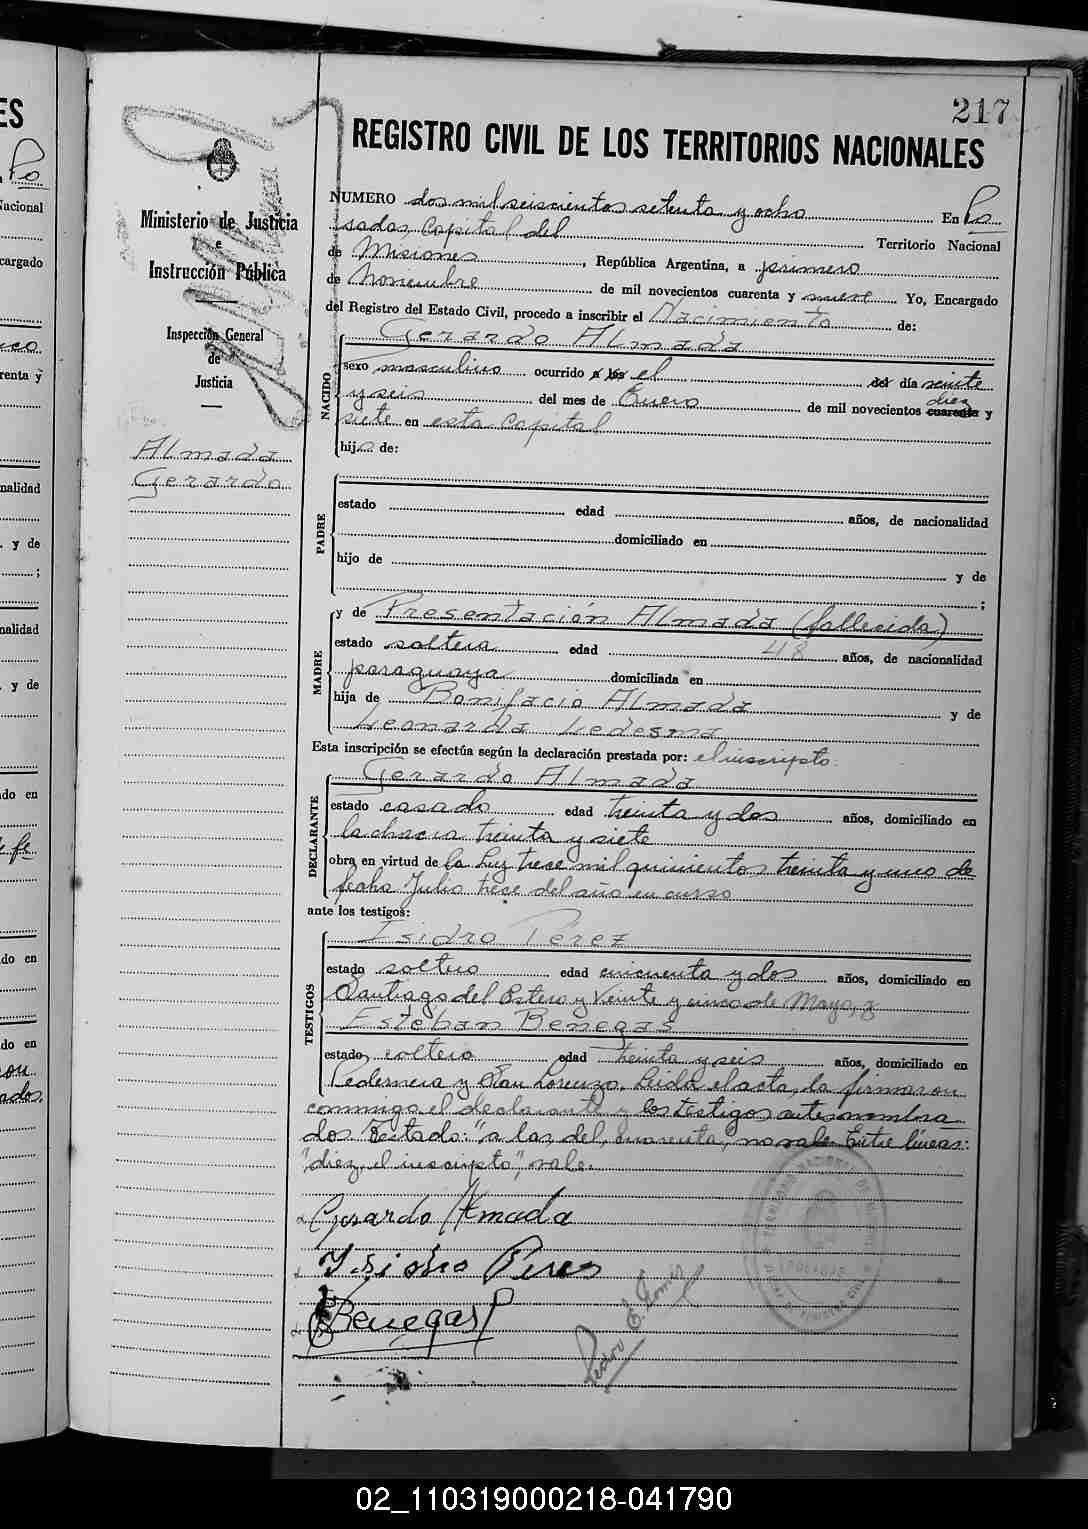 217
REGISTRO CIVIL DE LOS TERRITORIOS NACIONALES
Ministerio de Justicia
e
Instrucción Pública
Inspección General
de
Justicia
Almada
Gerardo
NUMERO dos mil seiscientos setenta y ocho En Po
sadas Capital del Territorio Nacional
de Misiones, República Argentina, a primero
de Noviembre de mil novecientos cuarenta y nueve Yo, Encargado
del Registro del Estado Civil, procedo a inscribir el Nacimiento de:
NACIDO
Gerardo Almada
sexo masculino ocurrido a las el del día veinte
diez
y seis del mes de Enero de mil novecientos cuarenta y
siete en esta Capital
hijo de:
PADRE
estado edad años, de nacionalidad
domiciliado en
hijo de y de
;
MADRE
y de Presentación Almada (fallecida)
estado soltera edad 48 años, de nacionalidad
paraguaya domiciliada en
hija de Bonifacio Almada y de
Leonarda Ledesma
Esta inscripción se efectúa según la declaración prestada por: el inscripto
DECLARANTE
Gerardo Almada
estado casado edad treinta y dos años, domiciliado en
la chacra treinta y siete
obra en virtud de la Ley trece mil quinientos treinta y uno de
fecha Julio trece del año en curso
ante los testigos:
TESTIGOS
Isidro Pérez
estado soltero edad cincuenta y dos años, domiciliado en
Santiago del Estero y Veinte y cinco de Mayo, y
Esteban Benegas
estado soltero edad treinta y seis años, domiciliado en
Pedernera y San Lorenzo. Leida el acta, la firmaron
conmigo el declarante y los testigos antesnombra
dos Testado: "a las, del, cuarenta," no vale. Entre lineas:
"diez, el inscripto", vale.
Gerardo Almada
Isidro Peres
Benegas
Pedro E. Gomez
ES
Po
Nacional
cargado
renta y
nalidad
y de
;
nalidad
y de
do en
fe
do en
do en
ron
ados.
02_110319000218-041790